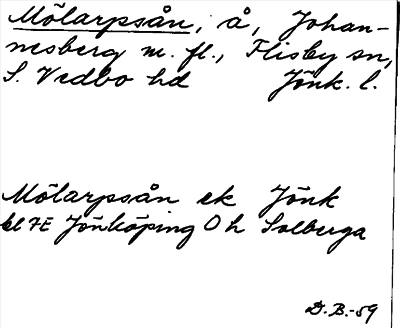 Mölarpsån, å, Johan-
nesberg m. fl., Flisby sn,
S. Vedbo hd Jönk. l.
Mölarpsån ek Jönk
bl 7E Jönköping Ö h Solberga
D. B.-59